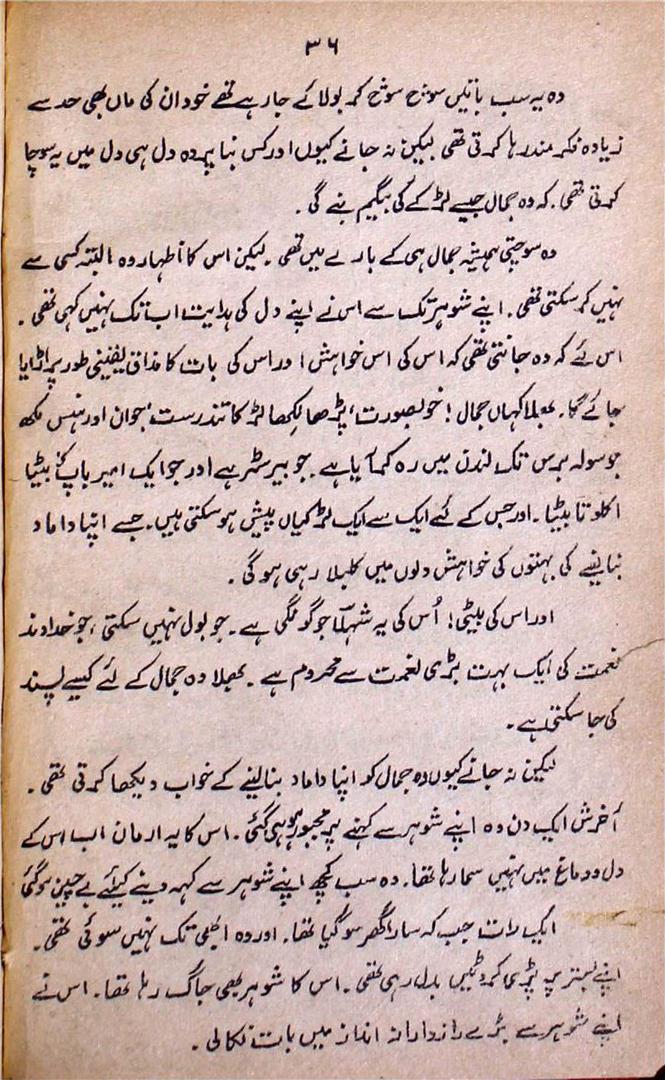 ۳۶
وہ یہ سب باتیں سوچ سوچ کر بولا کے جا رہے تھے خود ان کی ماں بھی حد سے
زیادہ فکر مند رہا کرتی تھی لیکن نہ جانے کیوں اور کس بنا پر وہ دل ہی دل میں یہ سوچا
کرتی تھی۔ کہ وہ جمال جیسے لڑکے کی بیگم بنے گی۔
وہ سوچتی ہمیشہ جمال ہی کے بارے میں تھی۔ لیکن اس کا اظہار وہ البتہ کسی سے
نہیں کر سکتی تھی۔ اپنے شوہر تک سے اس نے اپنے دل کی ہدایت اب تک نہیں کہی تھی۔
اس لئے کہ وہ جانتی تھی کہ اس کی اس خواہش اور اس کی بات کا مذاق یقینی طور پر اڑایا
جائے گا۔ بھلا کہاں جمال! خوبصورت، پڑھا لکھا لڑکا تندرست، جوان اور ہنس مکھ
جو سولہ برس تک لندن میں رہ کر آیا ہے۔ جو بیرسٹر ہے اور جو ایک امیر باپ کا بیٹا
اکلوتا بیٹا۔ اور جس کے لئے ایک سے ایک لڑکیاں پیش ہو سکتی ہیں۔ جسے اپنا داماد
بنا لینے کی بہتوں کی خواہش دلوں میں کلبلا رہی ہوگی۔
اور اس کی بیٹی! اُس کی یہ شہلا جو گونگی ہے۔ جو بول نہیں سکتی، جو خداوند
نعمت کی ایک بہت بڑی نعمت سے محروم ہے۔ بھلا وہ جمال کے لئے کیسے پسند
کی جا سکتی ہے۔
لیکن نہ جانے کیوں وہ جمال کو اپنا داماد بنا لینے کے خواب دیکھا کرتی تھی۔
آخرش ایک دن وہ اپنے شوہر سے کہنے پر مجبور ہو ہی گئی۔ اس کا یہ ارمان اب اس کے
دل و دماغ میں نہیں سما رہا تھا۔ وہ سب کچھ اپنے شوہر سے کہہ دینے کیلئے بے چین ہو گئی
ایک رات جب کہ سارا گھر سو گیا تھا۔ اور وہ ابھی تک نہیں سوئی تھی۔
اپنے بستر پر پڑی کروٹیں بدل رہی تھی۔ اس کا شوہر بھی جاگ رہا تھا۔ اس نے
اپنے شوہر سے بڑے رازدارانہ انداز میں بات نکالی۔